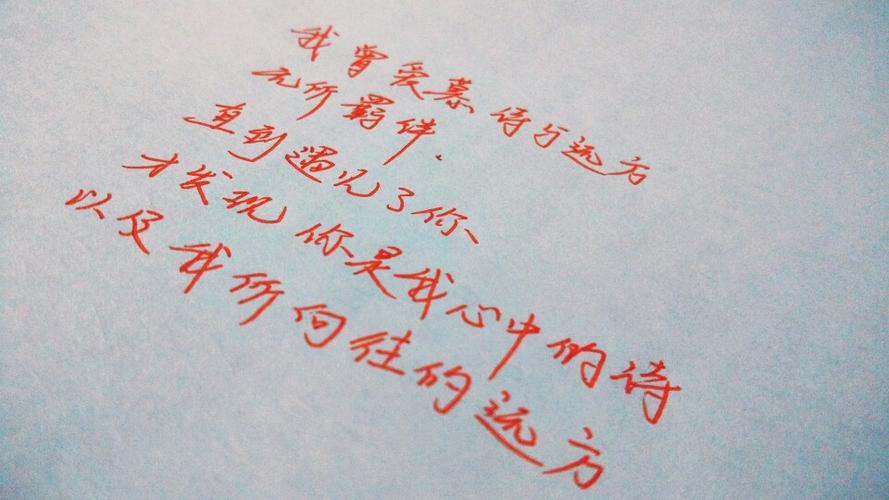 我曾爱慕诗与远方
无所羁绊、
直到遇见了你、
才发现你是我心中的诗
以及我所向往的远方